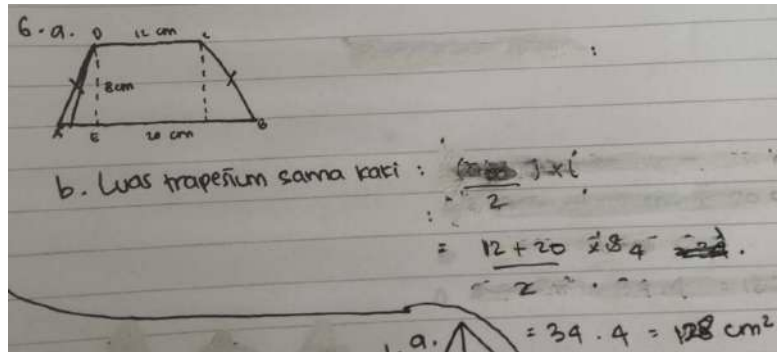 6. a. D 12 cm C
8 cm
A E 20 cm B
b. Luas trapesium sama kaki : ) × t
2
= 12 + 20 × 8 4
2
a. = 34 . 4 = 128 cm²